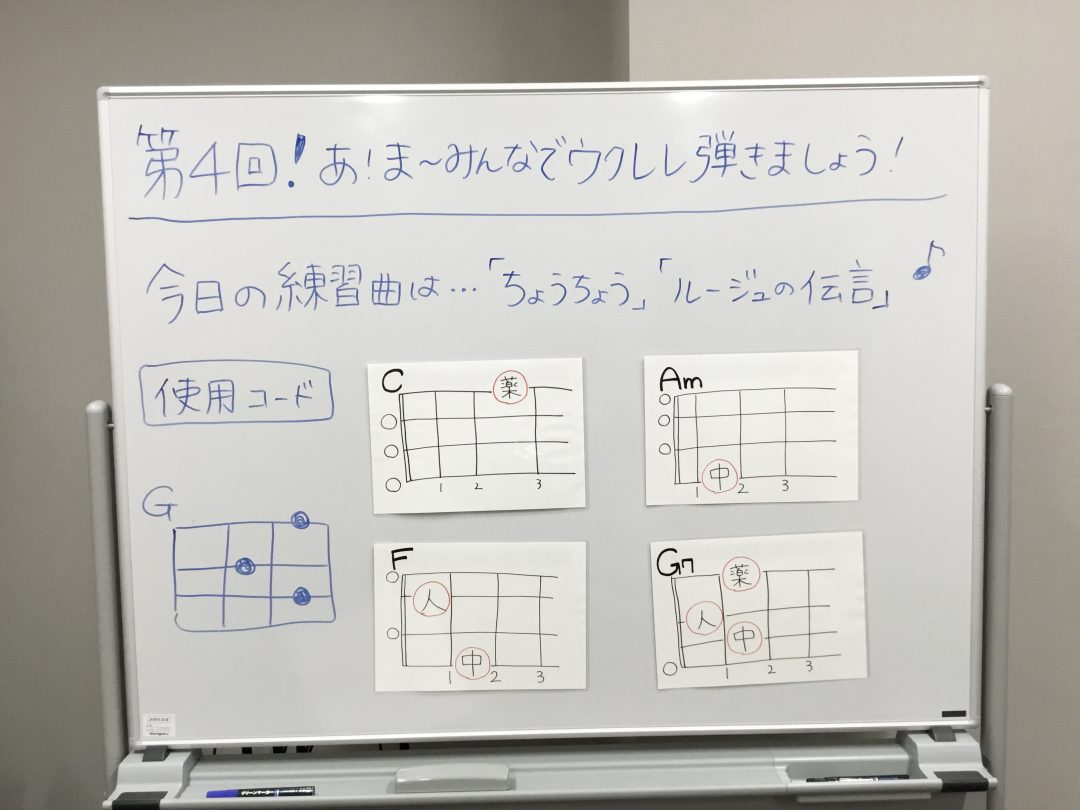 第4回！あ！ま〜みんなでウクレレ弾きましょう！
今日の練習曲は…「ちょうちょう」「ルージュの伝言」♪
使用コード
C
薬
1 2 3
Am
中
1 2 3
G
F
人
中
1 2 3
G7
薬
人
中
1 2 3
クリーンマーカー